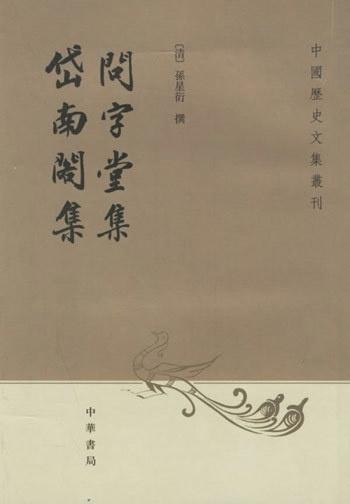 中國歷史文集叢刊
〔清〕孫星衍 撰
問字堂集
岱南閣集
中華書局